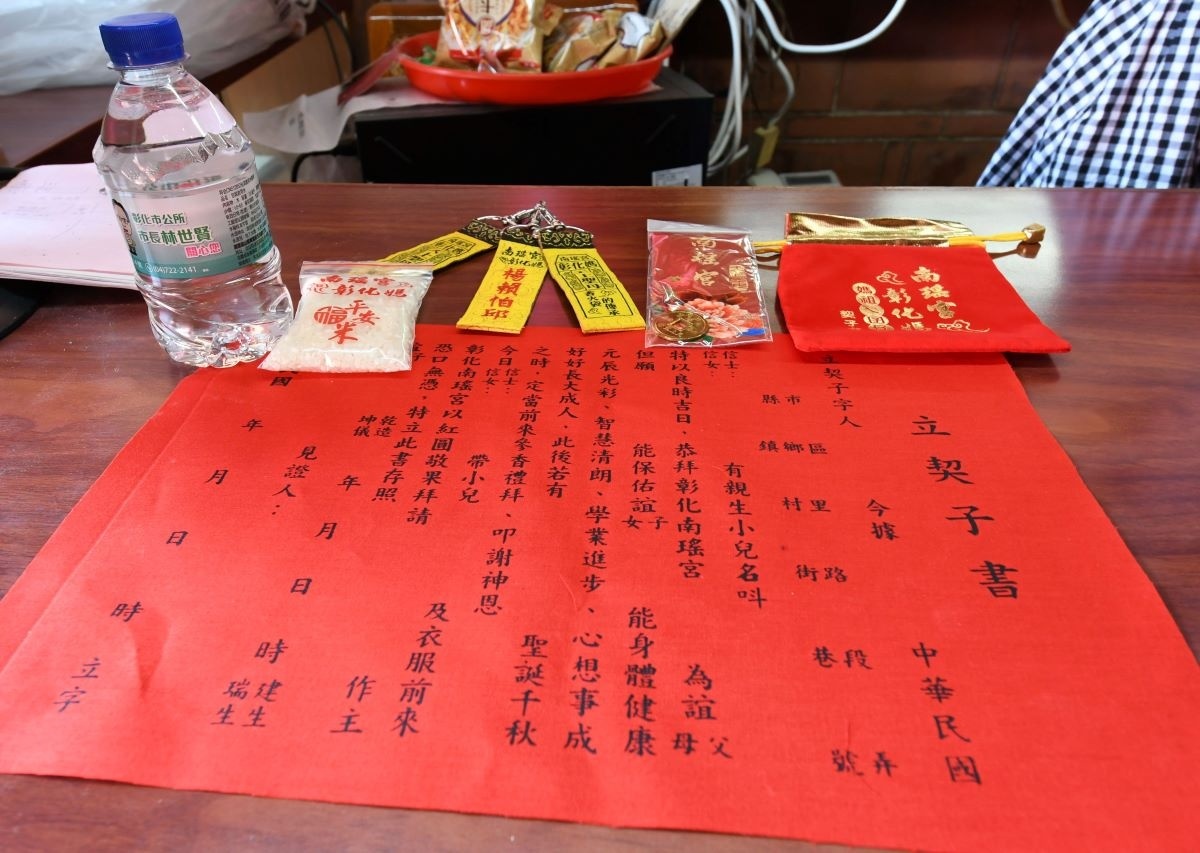 彰化市公所
市長林世賢
關心您
(04)722-2141
南瑤宮
彰化媽
平安米
南瑤宮
彰化媽
楊賴伯邱
南瑤宮
彰化媽
南瑤宮
南瑤宮
彰化媽
契子
立契子書
中華民國
今據
市 區 里 路 段 弄
縣 鄉鎮 村 街 巷 號
立契子字人
有親生小兒名叫
信士:
信女:
為誼父母
特以良時吉日、恭拜彰化南瑤宮
但願
能保佑誼子女
能身體健康
元辰光彩、智慧清朗、學業進步、心想事成
好好長大成人,此後若有
聖誕千秋
之時,定當前來參香禮拜、叩謝神恩
今日信士:
信女:
帶小兒
及衣服前來
彰化南瑤宮以紅圓敬果拜請
作主
恐口無憑,特立此書存照
乾造
坤儀
年
月
日
時
建生
瑞生
見證人:
國
年
月
日
時
立字